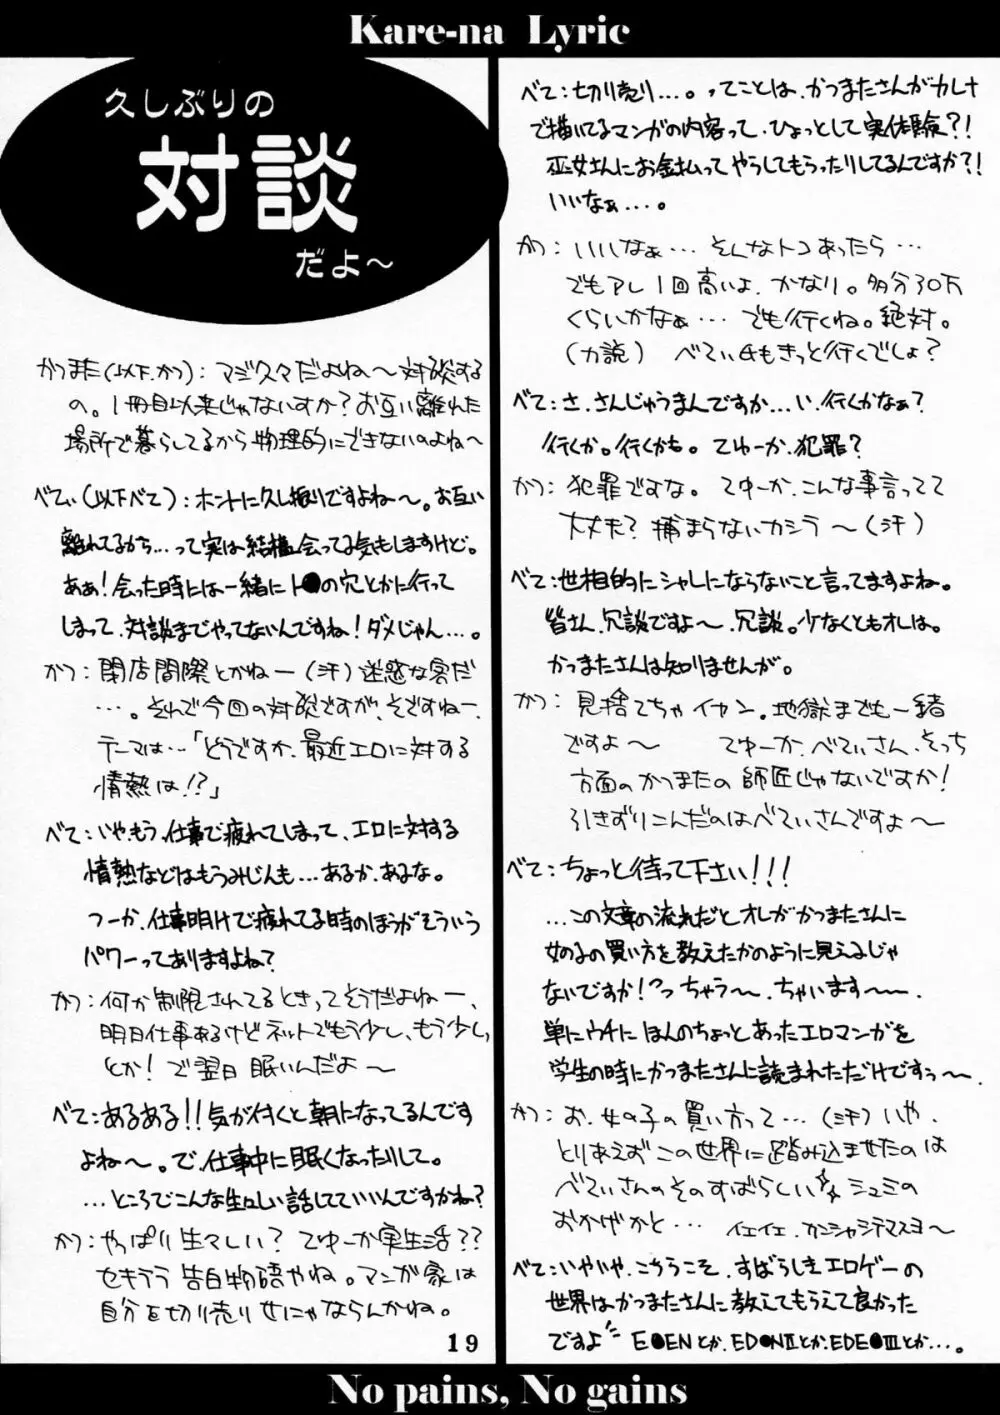 Kare-na Lyric
久しぶりの
対談
だよ～
かつまた(以下、かつ)：マジ久々だよね～対談する
の。1冊目以来じゃないすか？お互い離れた
場所で暮らしてるから物理的にできないのよね～
べてぃ(以下べて)：ホントに久し振りですよね～。お互い
離れてるから…って実は結構会ってる気もしますけど。
あぁ！会った時には一緒にト●の穴とかに行って
しまって、対談までやってないんですね！ダメじゃん…。
かつ：閉店間際とかねー(汗)迷惑な客だ
…。そんで今回の対談ですが、そですねー、
テーマは…「どうですか、最近エロに対する
情熱は！？」
べて：いや、もう、仕事で疲れてしまって、エロに対する
情熱などはもうみじんも…あるか、あるな。
つーか、仕事明けで疲れてる時のほうがそういう
パワーってありますよね？
かつ：何か制限されてるときってそうだよねー、
明日仕事あるけどネットでもう少し、もう少し、
とか！で翌日眠いんだよ～
べて：あるある！！気が付くと朝になってるんです
よね～。で、仕事中に眠くなったりして。
…ところでこんな生々しい話してていいんですかね？
かつ：やっぱり生々しい？てゆーか実生活？？
セキララ告白物語やね。マンガ家は
自分を切り売りせにゃならんかね。
19
べて：切り売り…。ってことは、かつまたさんがカレナ
で描いてるマンガの内容って、ひょっとして実体験？！
巫女さんにお金払ってやらしてもらったりしてるんですか？！
いいなぁ…。
かつ：いいなぁ…そんなトコあったら…
でもアレ1回高いよ、かなり。多分30万
くらいかなぁ…でも行くね。絶対。
(力説)べてぃ氏もきっと行くでしょ？
べて：さ、さんじゅうまんですか…い、行くかなぁ？
行くか。行くかも。てゆーか、犯罪？
かつ：犯罪ですな。てゆーか、こんな事言ってて
大丈夫？捕まらないカシラ～(汗)
べて：世相的にシャレにならないこと言ってますよね。
皆さん、冗談ですよ～、冗談。少なくともオレは。
かつまたさんは知りませんが。
かつ：見捨てちゃイヤン。地獄までも一緒
ですよ～ てゆーか、べてぃさん、そっち
方面のかつまたの師匠じゃないですか！
引きずりこんだのはべてぃさんですよ～
べて：ちょっと待って下さい！！！
…この文章の流れだとオレがかつまたさんに
女の子の買い方を教えたかのように見えるじゃ
ないですか！？っちゃう～、ちゃいます～、
単にウチにほんのちょっとあったエロマンガを
学生の時にかつまたさんに読まれただけですぅ～、
かつ：お、女の子の買い方って…(汗)いや、
とりあえずこの世界に踏み込ませたのは
べてぃさんのそのすばらしい☆シュミの
おかげかと… イエイエ、カンシャシテマスヨ～
べて：いやいや、こちらこそ、すばらしきエロゲーの
世界はかつまたさんに教えてもらえて良かった
ですよ E●ENとか、ED●NⅡとか、EDE●Ⅲとか…。
No pains, No gains